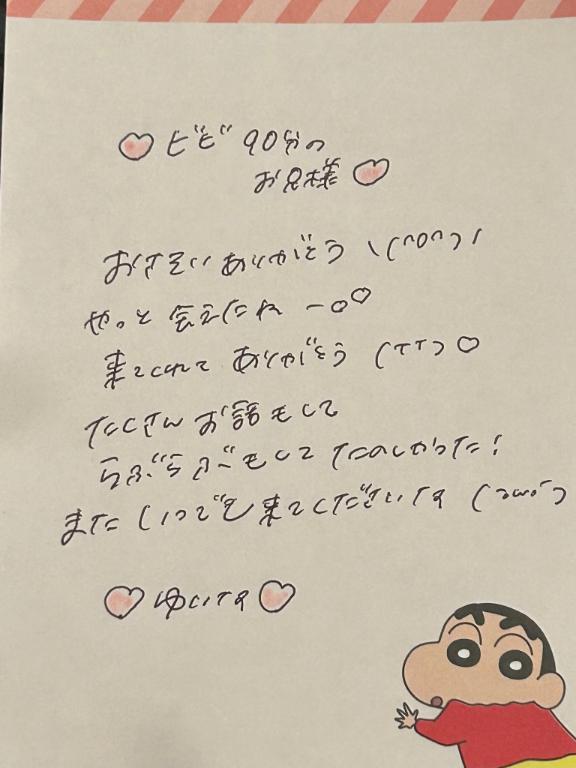 ♡ ビビ 90分の
お兄様 ♡
おさそい ありがとう \(^o^)/
やっと 会えたね ー○♡
来てくれて ありがとう (TT) ♡
たくさん お話もして
らぶらぶもして たのしかった!
また いつでも 来てくださいな (˘ω˘)
♡ ゆいな ♡